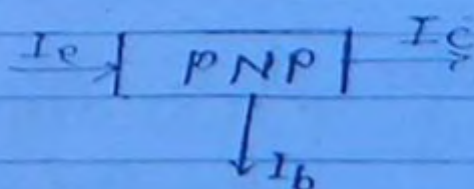 Ie PNP Ic
Ib